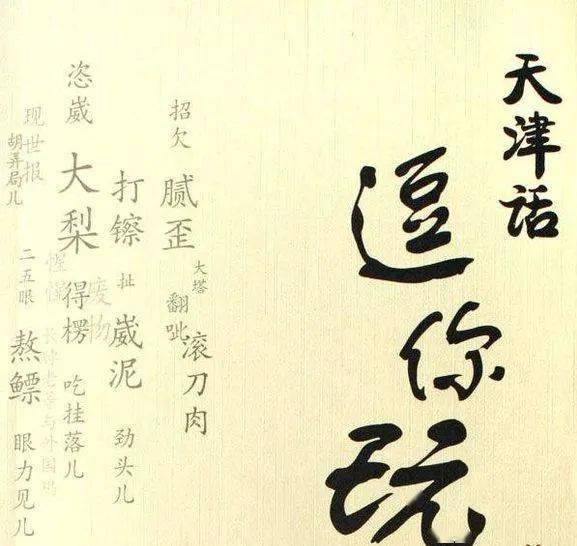 天津话
逗你玩
大塔
滚刀肉
招欠
腻歪
翻呲
打镲
扯
崴泥
劲头儿
废物
恣崴
大梨
得楞
吃挂落儿
现世报
胡弄局儿
二五眼
熬鳔
眼力见儿